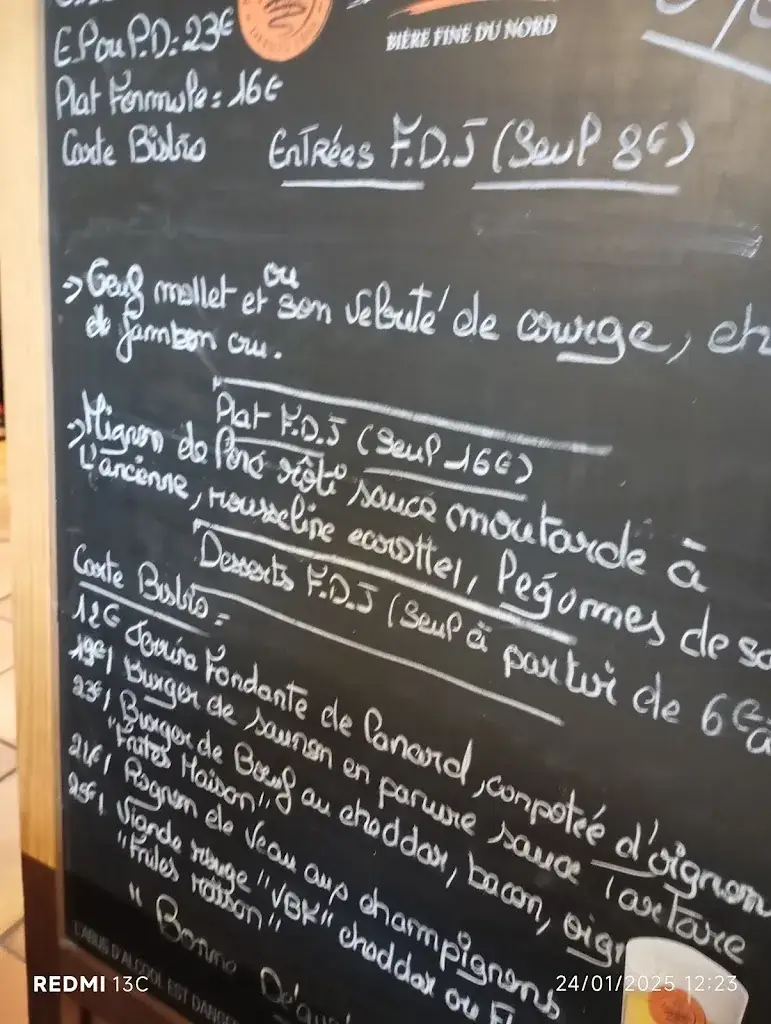 E.P ou P.D: 23€
BIÈRE FINE DU NORD
Plat Formule = 16€
Carte Bistro
Entrées F.D.J (Seul 8€)
→ Oeuf mollet et ou son velouté de courge,
de jambon cru.
Plat F.D.J (Seul 16€)
→ Mignon de Porc rôti sauce moutarde à
L'ancienne, mousseline légumes de
Desserts F.D.J (Seul à partir de 6€
Carte Bistro =
12€ Terrine Fondante de Canard, compotée d'oignon
19€/ Burger de saumon en parure sauce Tartare
23€/ Burger de Boeuf au cheddar, bacon,
"Frites Maison"
21€/ Rognon de Veau aux champignons
Viande rouge "VBK" cheddar ou
"Frites Maison"
"Bonne
L'ABUS D'ALCOOL EST
REDMI 13C
24/01/2025 12:23